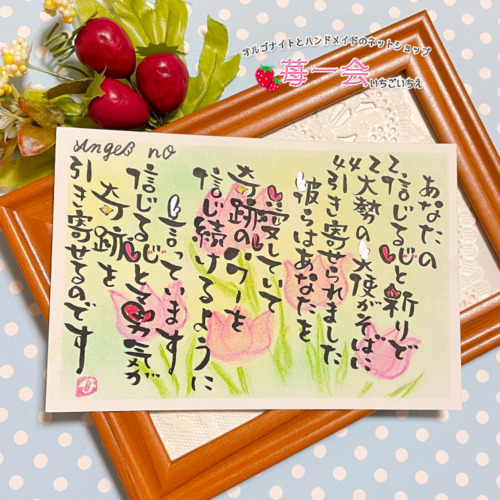 オルゴナイトとハンドメイドのネットショップ
苺一会 いちごいちえ
angel no
あなたの
信じる心と祈りで
大勢の天使がそばに
引き寄せられました
彼らはあなたを
愛していて
奇跡のパワーを
信じ続けるように
言っています
信じる心と勇気が
奇跡を
引き寄せるのです